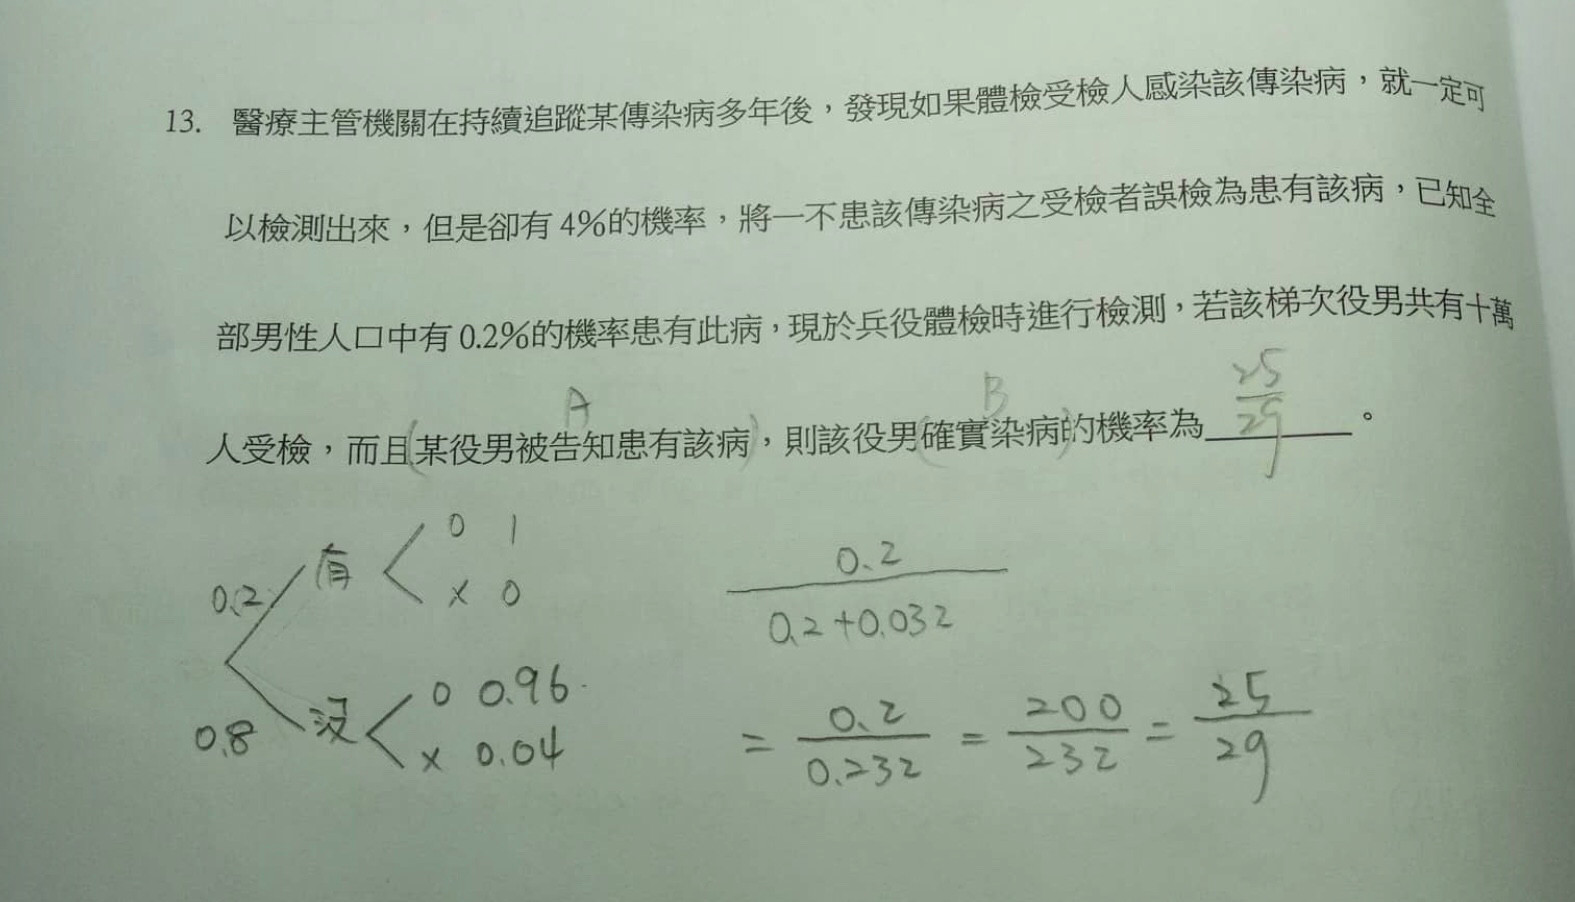 13. 醫療主管機關在持續追蹤某傳染病多年後，發現如果體檢受檢人感染該傳染病，就一定可
以檢測出來，但是卻有4%的機率，將一不患該傳染病之受檢者誤檢為患有該病，已知全
部男性人口中有0.2%的機率患有此病，現於兵役體檢時進行檢測，若該梯次役男共有十萬
A B 25/29
人受檢，而且(某役男被告知患有該病)，則該役男(確實染病)的機率為______。
0.2 有 < 0 1
x 0
0.8 沒 < 0 0.96
x 0.04
0.2
0.2+0.032
= 0.2/0.232 = 200/232 = 25/29